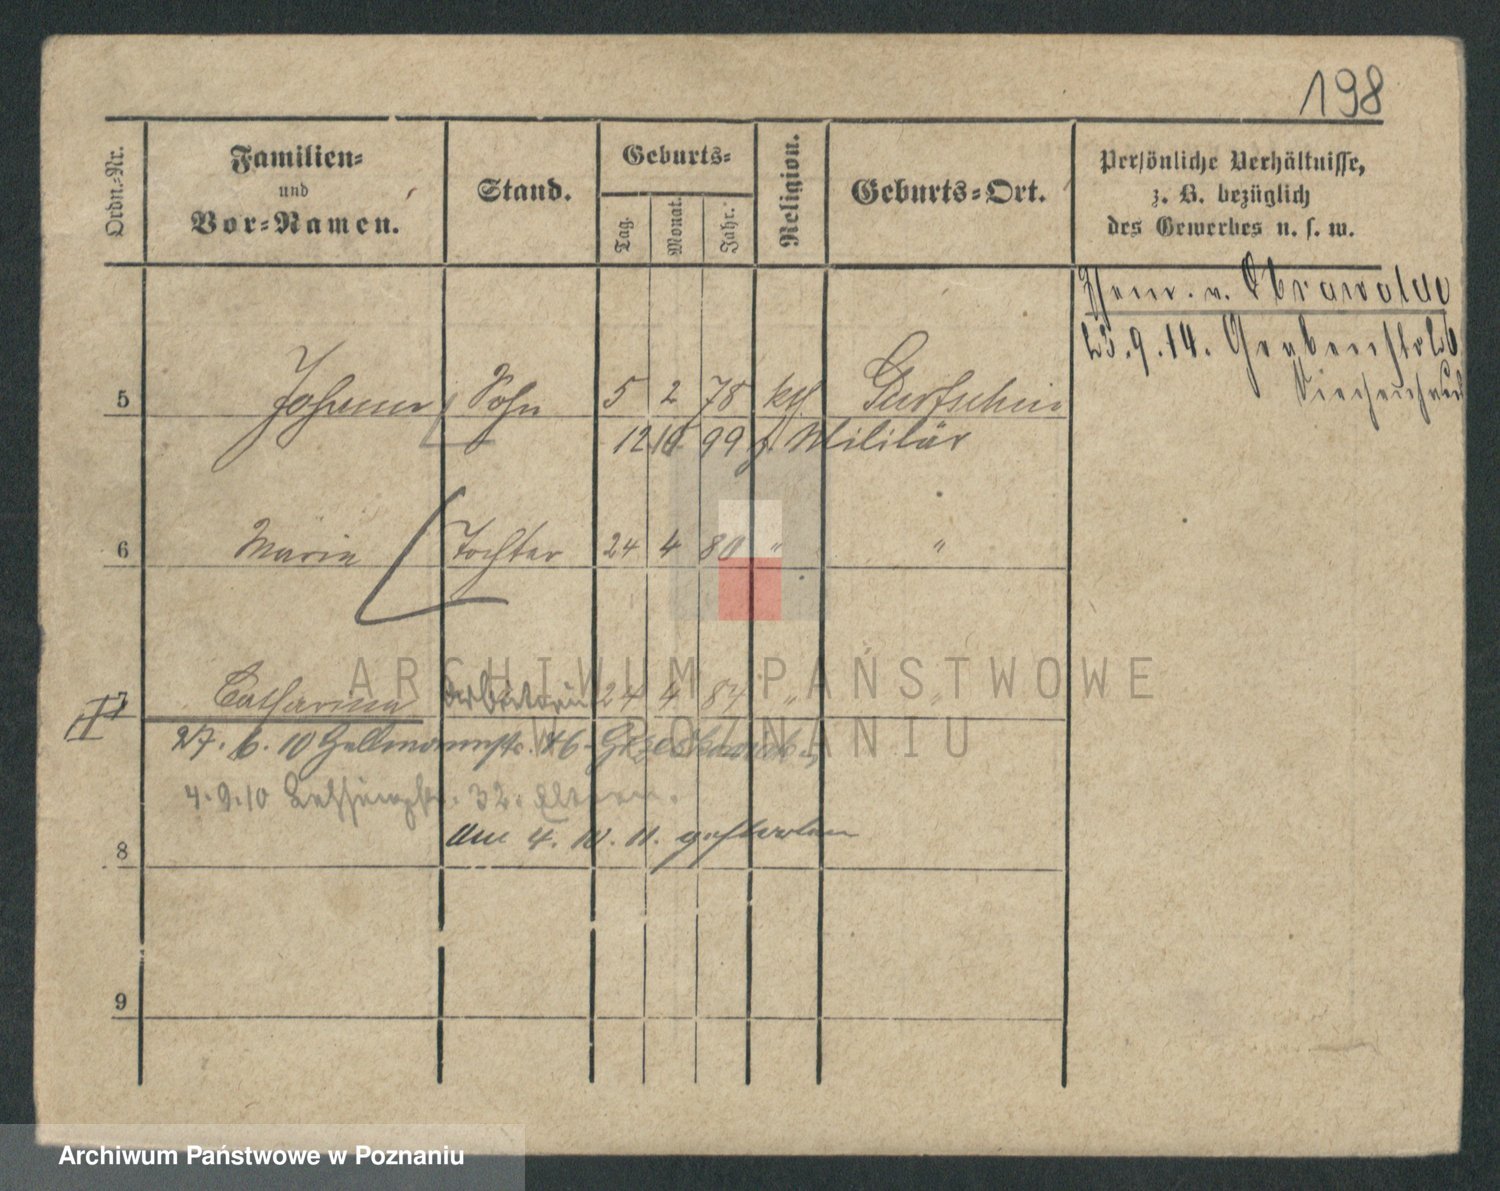 198
Ordn.-Nr.
Familien-
und
Vor-Namen.
Stand.
Geburts-
Tag.
Monat.
Jahr.
Religion.
Geburts-Ort.
Persönliche Verhältnisse,
z. B. bezüglich
des Gewerbes u. s. w.
v. Obrawalde
23.9.14. Grabenstr 26
Siechenhaus
5 Johann Sohn 5 2 78 kth Gurtschin
12 10 99 z. Militär
6 Maria Tochter 24 4 80 " "
7 Catharina Arbeiterin 24 4 84 " "
II
27. 6. 10 46
4.9.10 32. Eltern.
am 4. 10. 11. gestorben
8
9
ARCHIWUM PAŃSTWOWE
W POZNANIU
Archiwum Państwowe w Poznaniu